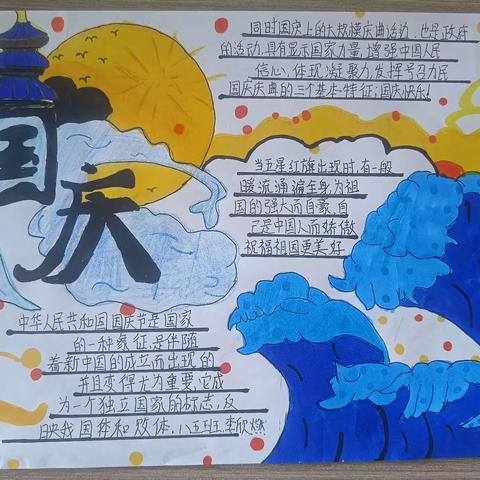 同时国庆上的大规模庆典活动，也是政府
的活动，具有显示国家力量，增强中国人民
信心，体现凝聚力，发挥号召力民
国庆庆典的三个基本特征；国庆快乐！
当五星红旗出现时，有一般
暖流涌遍全身为祖
国的强大而自豪，自
己是中国人而娇傲
祝福祖国更美好
国庆
中华人民共和国国庆节是国家
的一种象征，是伴随
着新中国的成立而出现的
并且变得尤为重要，它成
为一个独立国家的标志，反
映我国体和政体，八五班王李欣燃